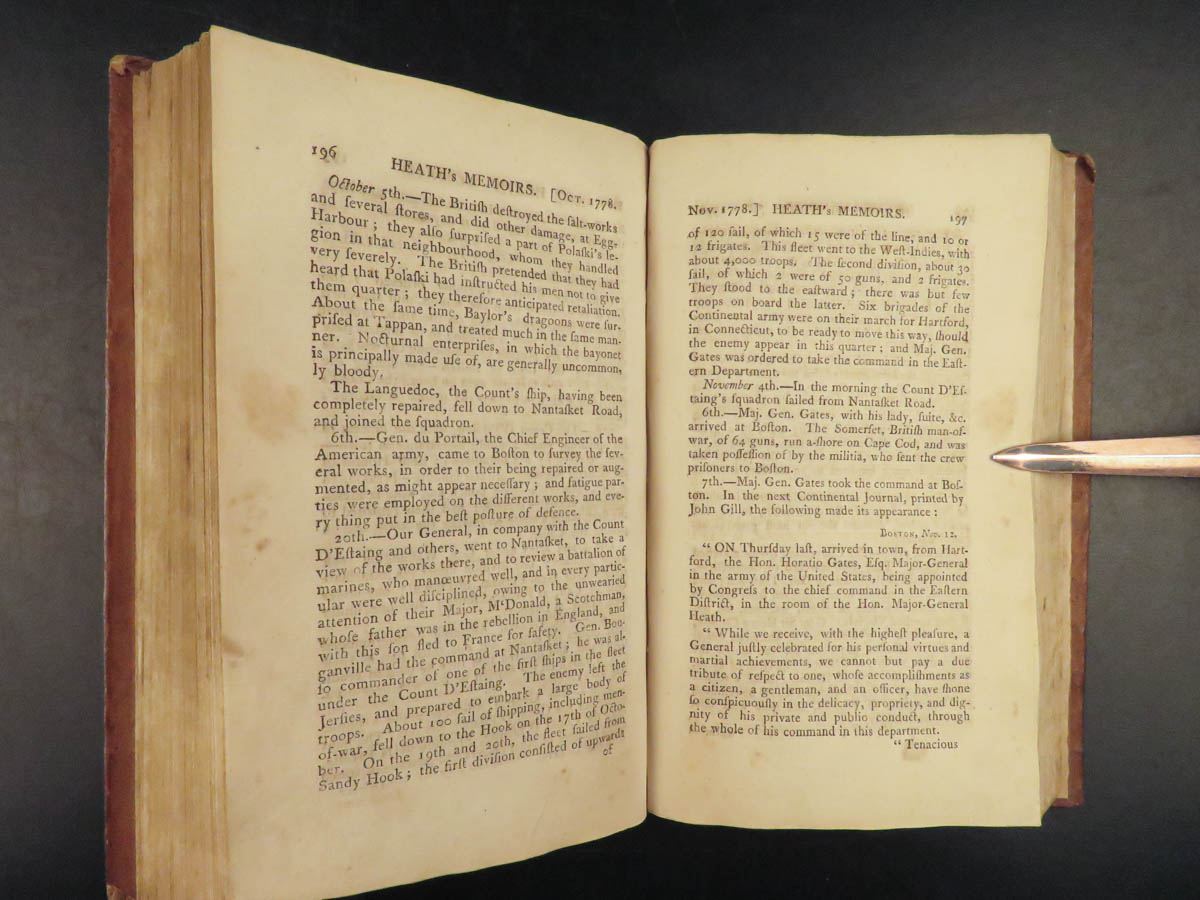 196
HEATH's MEMOIRS. [Oct. 1778.
October 5th.—The Britiſh deſtroyed the ſalt-works
and ſeveral ſtores, and did other damage, at Egg-
Harbour ; they alſo ſurpriſed a part of Polaſki's le-
gion in that neighbourhood, whom they handled
very ſeverely. The Britiſh pretended that they had
heard that Polaſki had inſtructed his men not to give
them quarter ; they therefore anticipated retaliation.
About the ſame time, Baylor's dragoons were ſur-
priſed at Tappan, and treated much in the ſame man-
ner. Nocturnal enterpriſes, in which the bayonet
is principally made uſe of, are generally uncommon-
ly bloody.
The Languedoc, the Count's ſhip, having been
completely repaired, fell down to Nantaſket Road,
and joined the ſquadron.
6th.—Gen. du Portail, the Chief Engineer of the
American army, came to Boſton to ſurvey the ſev-
eral works, in order to their being repaired or aug-
mented, as might appear neceſſary ; and fatigue par-
ties were employed on the different works, and eve-
ry thing put in the beſt poſture of defence.
20th.—Our General, in company with the Count
D'Eſtaing and others, went to Nantaſket, to take a
view of the works there, and to review a battalion of
marines, who manœuvred well, and in every partic-
ular were well diſciplined, owing to the unwearied
attention of their Major, McDonald, a Scotchman,
whoſe father was in the rebellion in England, and
with this ſon fled to France for ſafety. Gen. Bou-
ganville had the command at Nantaſket ; he was al-
ſo commander of one of the firſt ſhips in the fleet
under the Count D'Eſtaing. The enemy left the
Jerſies, and prepared to embark a large body of
troops. About 100 ſail of ſhipping, including men-
of-war, fell down to the Hook on the 17th of Octo-
ber. On the 19th and 20th, the fleet ſailed from
Sandy Hook ; the firſt diviſion conſiſted of upwards
of
Nov. 1778.] HEATH's MEMOIRS. 197
of 120 ſail, of which 15 were of the line, and 10 or
12 frigates. This fleet went to the Weſt-Indies, with
about 4,000 troops. The ſecond diviſion, about 30
ſail, of which 2 were of 50 guns, and 2 frigates.
They ſtood to the eaſtward ; there was but few
troops on board the latter. Six brigades of the
Continental army were on their march for Hartford,
in Connecticut, to be ready to move this way, ſhould
the enemy appear in this quarter ; and Maj. Gen.
Gates was ordered to take the command in the Eaſt-
ern Department.
November 4th.—In the morning the Count D'Eſ-
taing's ſquadron ſailed from Nantaſket Road.
6th.—Maj. Gen. Gates, with his lady, ſuite, &c.
arrived at Boſton. The Somerſet, Britiſh man-of-
war, of 64 guns, run a-ſhore on Cape Cod, and was
taken poſſeſſion of by the militia, who ſent the crew
priſoners to Boſton.
7th.—Maj. Gen. Gates took the command at Boſ-
ton. In the next Continental Journal, printed by
John Gill, the following made its appearance :
Boston, Nov. 12.
“ ON Thurſday laſt, arrived in town, from Hart-
ford, the Hon. Horatio Gates, Eſq. Major-General
in the army of the United States, being appointed
by Congreſs to the chief command in the Eaſtern
Diſtrict, in the room of the Hon. Major-General
Heath.
“ While we receive, with the higheſt pleaſure, a
General juſtly celebrated for his perſonal virtues and
martial achievements, we cannot but pay a due
tribute of reſpect to one, whoſe accompliſhments as
a citizen, a gentleman, and an officer, have ſhone
ſo conſpicuouſly in the delicacy, propriety, and dig-
nity of his private and public conduct, through
the whole of his command in this department.
“ Tenacious